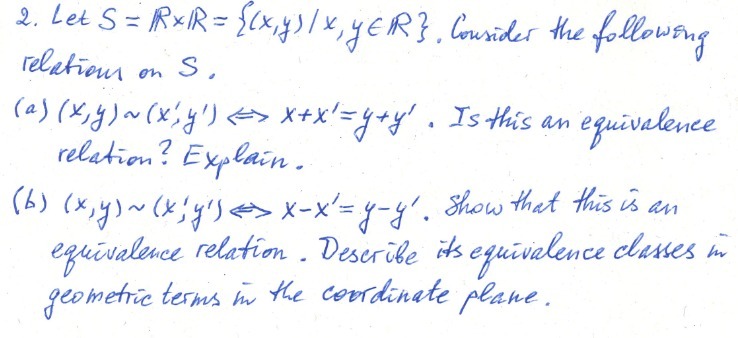 2. Let S = ℝ×ℝ = {(x,y) / x, y ∈ ℝ}. Consider the following
relations on S.
(a) (x,y) ~ (x',y') ⟺ x+x'=y+y'. Is this an equivalence
relation? Explain.
(b) (x,y) ~ (x',y') ⟺ x-x'=y-y'. Show that this is an
equivalence relation. Describe its equivalence classes in
geometric terms in the coordinate plane.